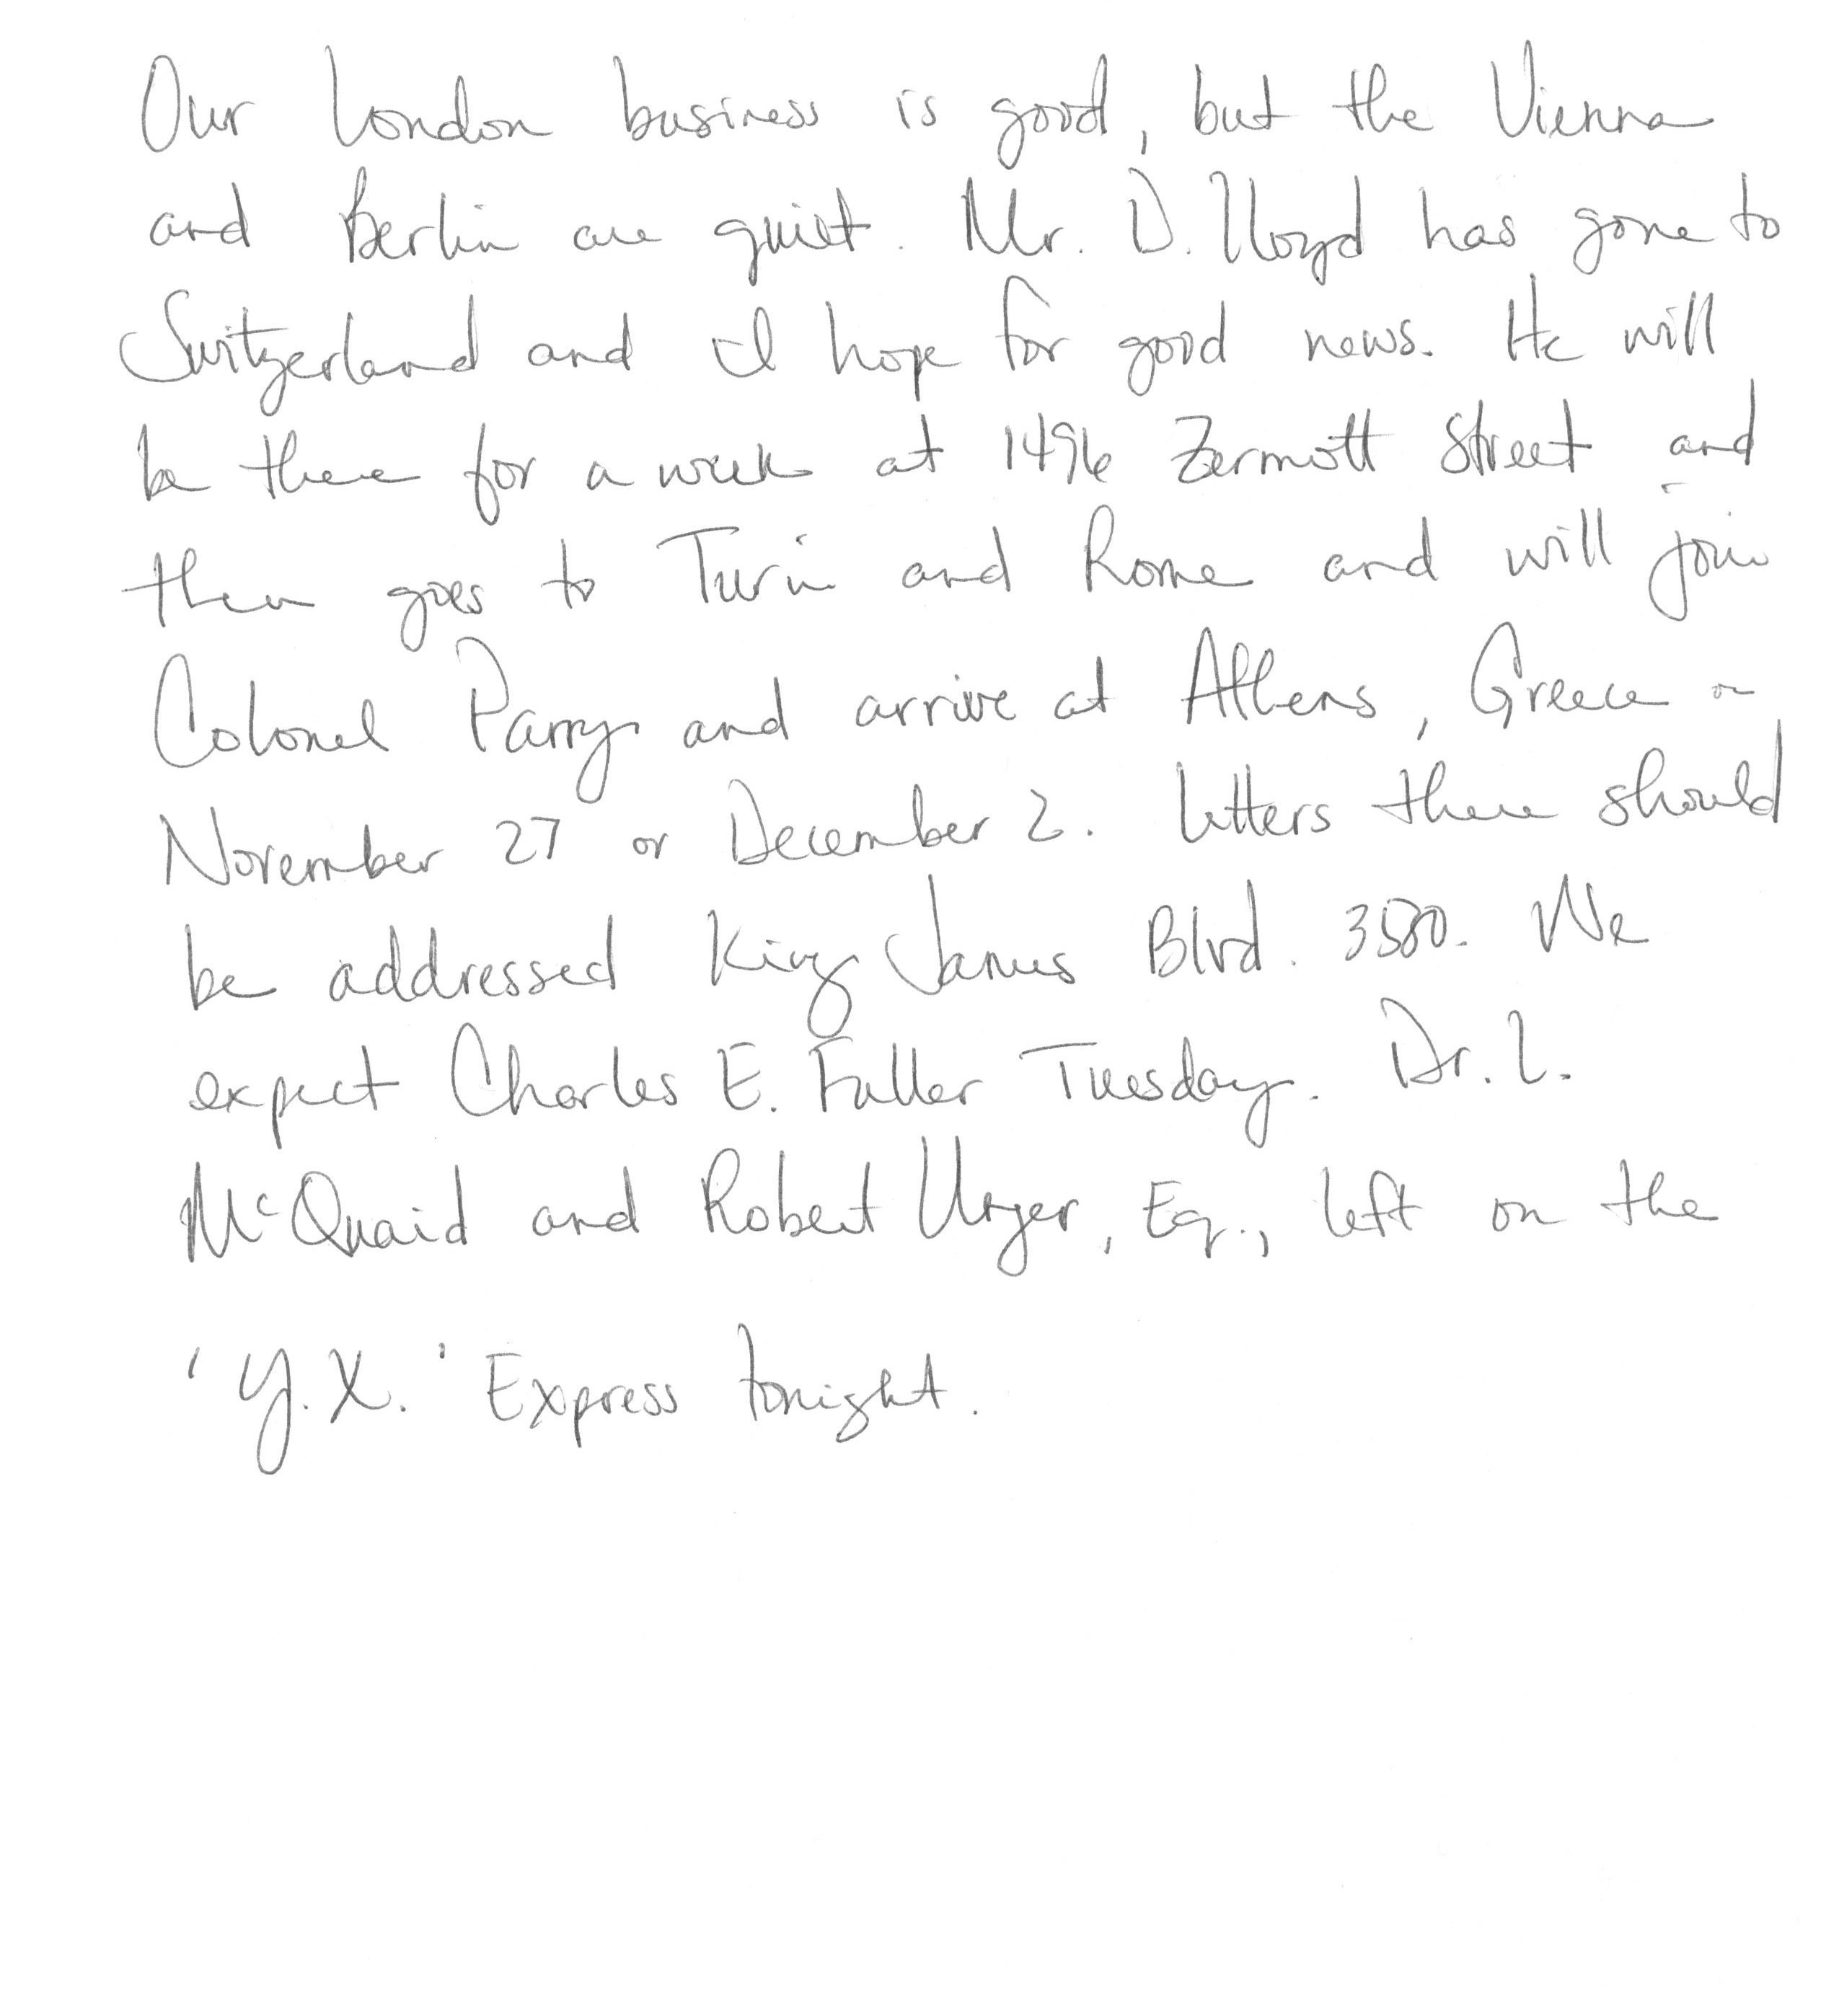 Our London business is good, but the Vienna
and Berlin are quiet. Mr. D. Lloyd has gone to
Switzerland and I hope for good news. He will
be there for a week at 1496 Zermott Street and
then goes to Turin and Rome and will join
Colonel Parry and arrive at Athens, Greece on
November 27 or December 2. Letters there should
be addressed King James Blvd. 3580. We
expect Charles E. Fuller Tuesday. Dr. L.
McQuaid and Robert Unger, Eq., left on the
'Y.X.' Express tonight.